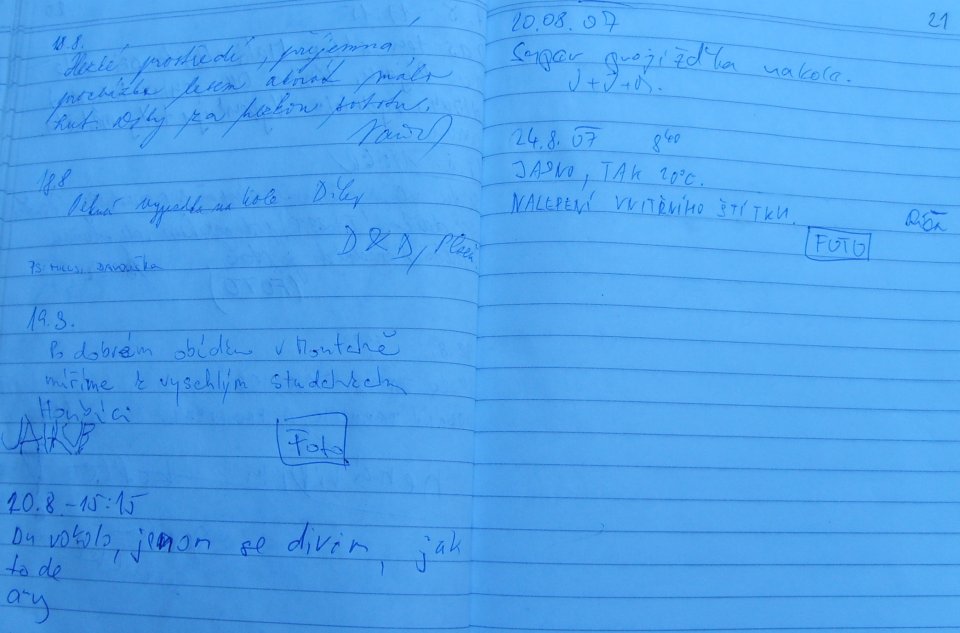 18.8.
Hezké prostředí, příjemná
procházka lesem akorát málo
hub. Díky za pěknou sobotu.
18.8
Pěkná vyjížďka na kole.
D & D, Plzeň
PS:
19.8.
Po dobrém obídku v Montaně
míříme k vyschlým studánkám
Houbíci
JAKUB
Foto
20.8 - 15:15
Du vokolo, jenom se dívám, jak
to de
a-y
21
20.08.07
Super projížďka na kole.
J+J+
24.8.07 8⁴⁰
JASNO, TAK 20°C.
NALEPENÍ VNITŘNÍHO ŠTÍTKU.
FOTO